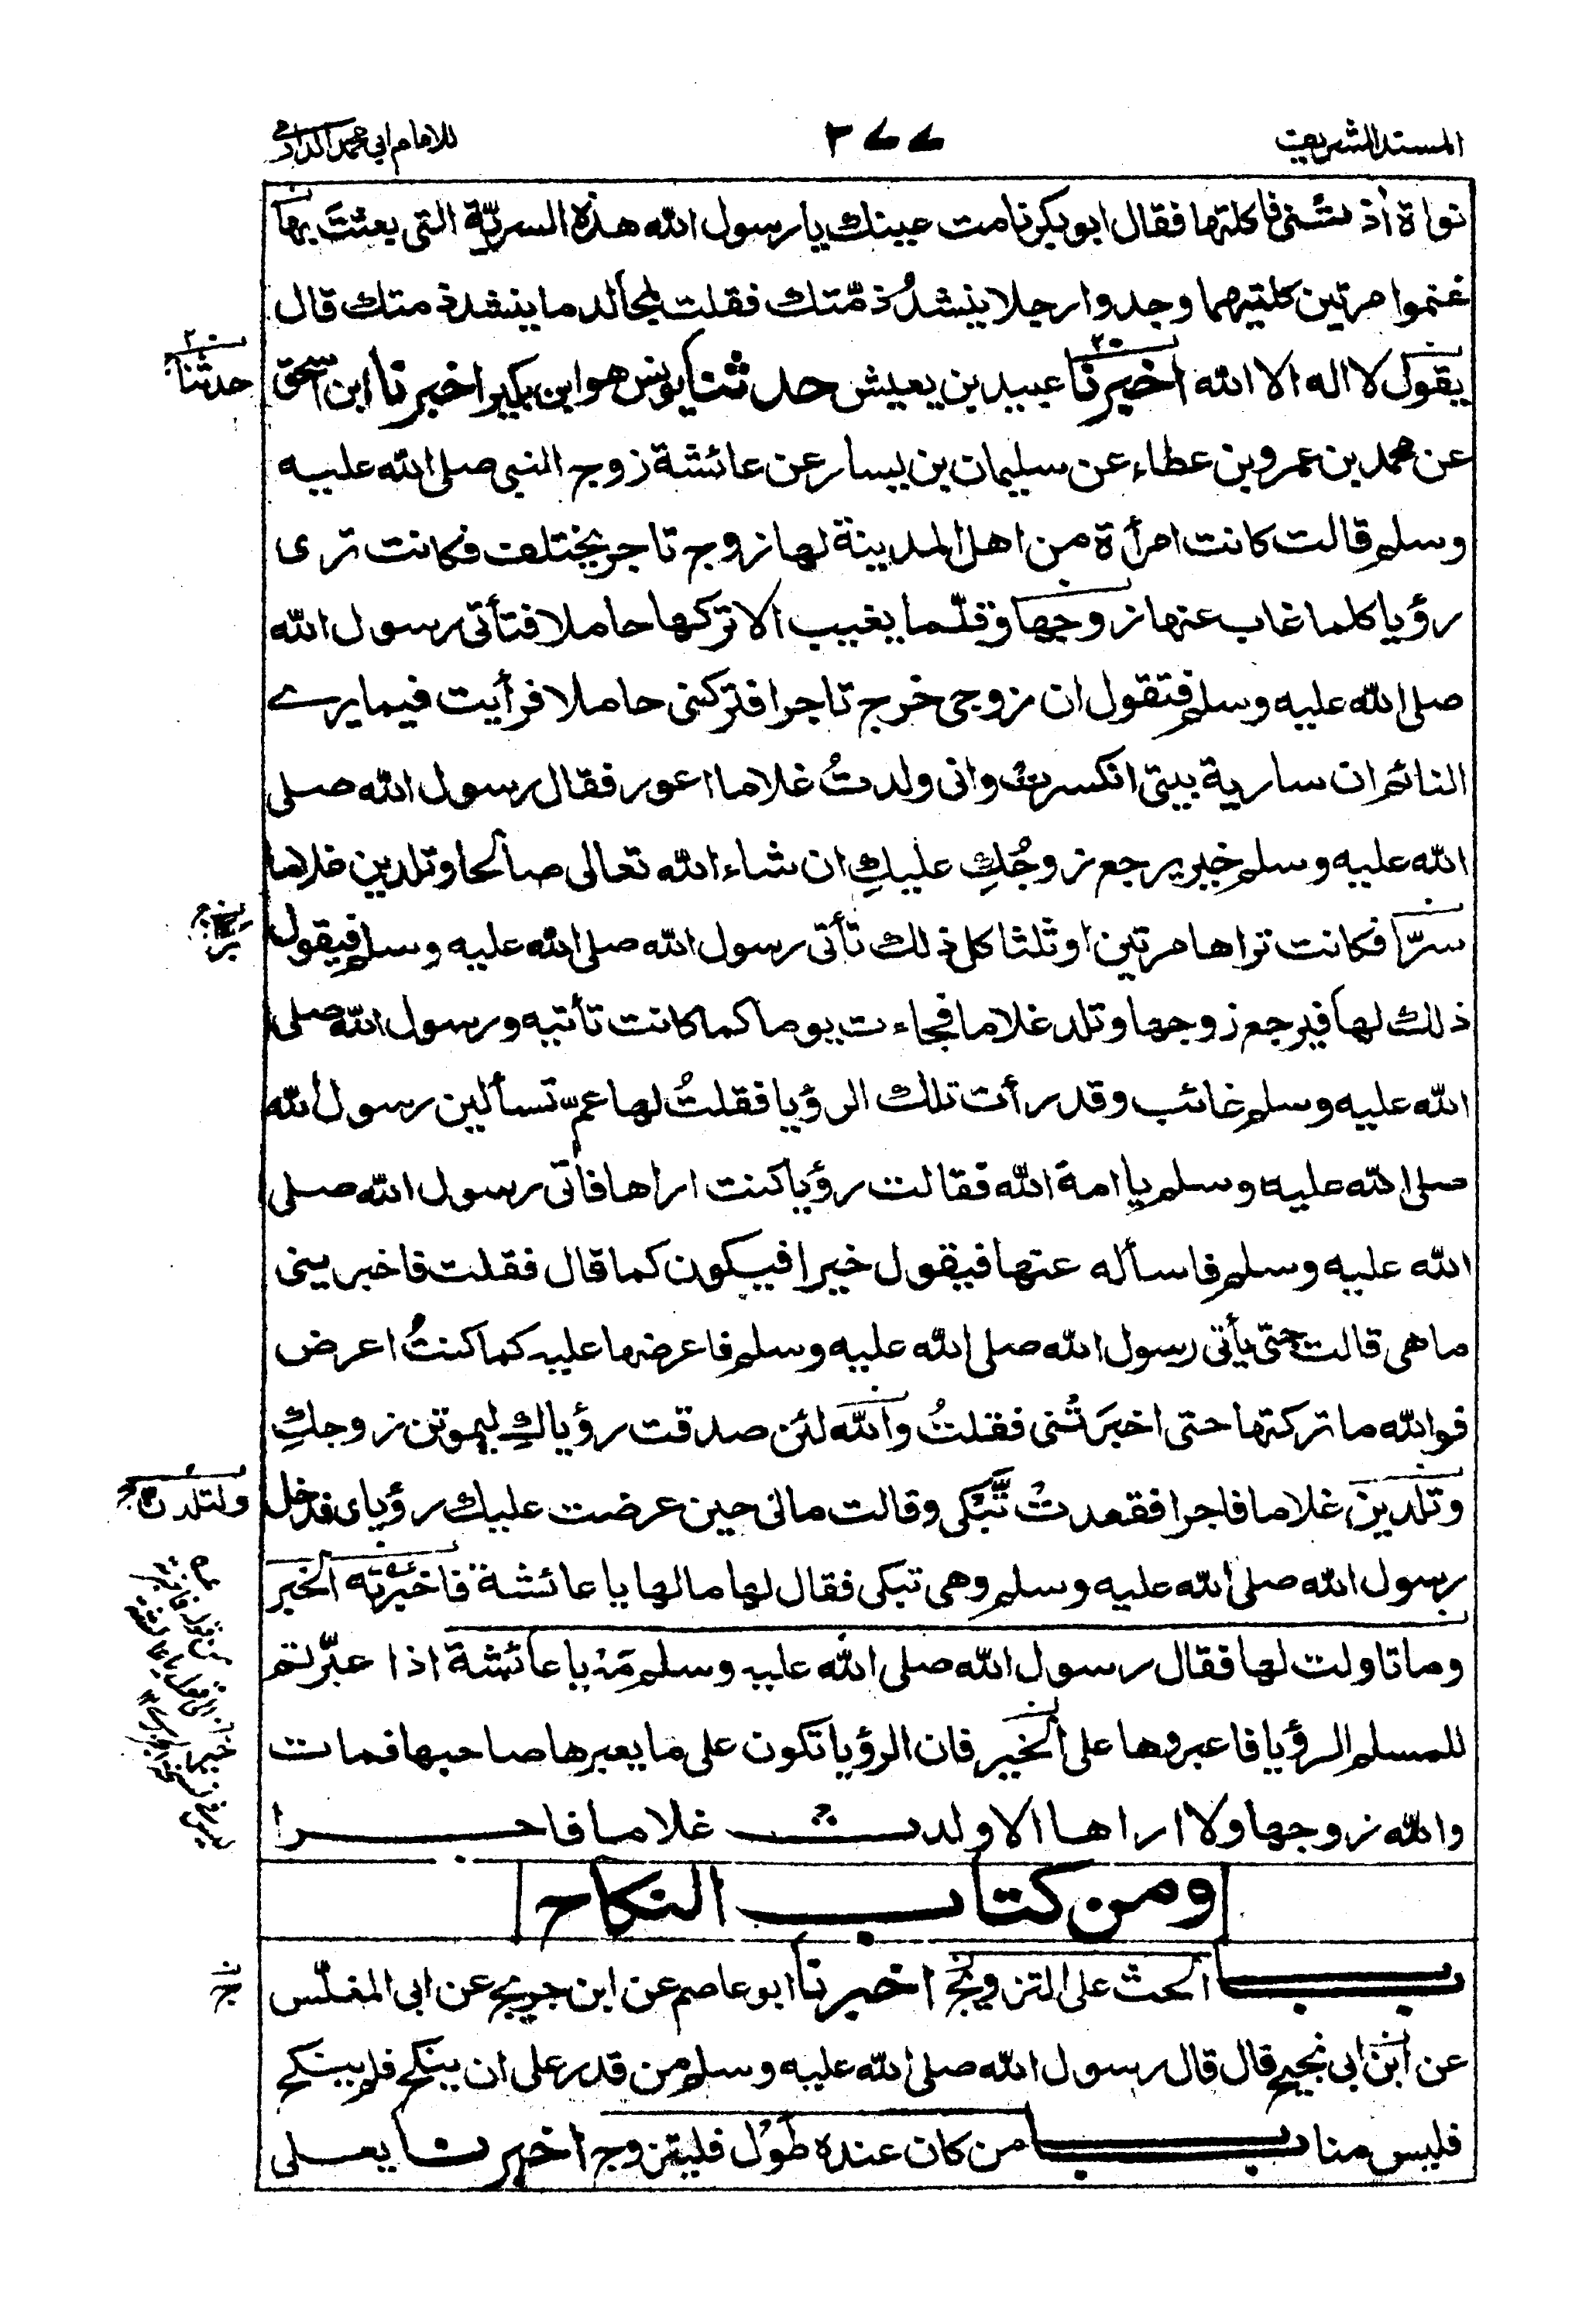 المسند الشريف ٢٧٧ للامام ابي محمد الدارمي
نواة اذتنى فاكلتها فقال ابو بكر نامت عينك يا رسول الله هذه السريّة التى بعثتَ بها
غنموا مرتين كلتيهما وجدوا رجلا ينشدُ ذمّتك فقلت لمجالد ما ينشد ذمتك قال
يقول لا اله الا الله اخبرنا عبيد بن يعيش حدثنا يونس هو ابن بكير اخبرنا ابن اسحق
حدثنا
عن محمد بن عمرو بن عطاء عن سليمان بن يسار عن عائشة زوج النبى صلى الله عليه
وسلم قالت كانت امرأة من اهل المدينة لها زوج تاجر يختلف فكانت ترى
رؤيا كلما غاب عنها زوجها وقلّما يغيب الا تركها حاملا فتأتى رسول الله
صلى الله عليه وسلم فتقول ان زوجى خرج تاجرا فتركنى حاملا فرأيت فيما يرے
النائم ان سارية بيتى انكسرت وانى ولدتُ غلاما اعور فقال رسول الله صلى
الله عليه وسلم خير يرجع زوجُكِ عليكِ ان شاء الله تعالى صالحا وتلدين غلاما
سرّا فكانت تراها مرتين او ثلثا كل ذلك تأتى رسول الله صلى الله عليه وسلم فيقول
ذلك لها فيرجع زوجها وتلد غلاما فجاءت يوما كما كانت تأتيه ورسول الله صلى
الله عليه وسلم غائب وقد رأت تلك الرؤيا فقلتُ لها عمّ تسألين رسول الله
صلى الله عليه وسلم يا امة الله فقالت رؤيا كنت اراها فأتى رسول الله صلى
الله عليه وسلم فاسأله عنها فيقول خيرا فيكون كما قال فقلت فاخبرينى
ما هى قالت حتى يأتى رسول الله صلى الله عليه وسلم فاعرضها عليه كما كنتُ اعرض
فوالله ما تركتها حتى اخبرَتْنى فقلتُ والله لئن صدقت رؤياكِ ليموتن زوجكِ
وتلدين غلاما فاجرا فقعدتْ تَبْكى وقالت مالى حين عرضت عليك رؤياى فدخل
ولتلدن
رسول الله صلى الله عليه وسلم وهى تبكى فقال لها ما لها يا عائشة فاخبرته الخبر
وما تاولت لها فقال رسول الله صلى الله عليه وسلم مَهْ يا عائشة اذا عبّرتم
للمسلم الرؤيا فاعبروها على الخير فان الرؤيا تكون على ما يعبرها صاحبها فمات
والله زوجها ولا اراها الا ولدت غلاما فاجرا
ومن كتاب النكاح
باب الحث على التزويج اخبرنا ابو عاصم عن ابن جريج عن ابى المغلّس
عن ابن ابى نجيح قال قال رسول الله صلى الله عليه وسلم من قدر على ان ينكح فلم ينكح
فليس منا باب من كان عنده طَوْل فليتزوج اخبرنا يعلى